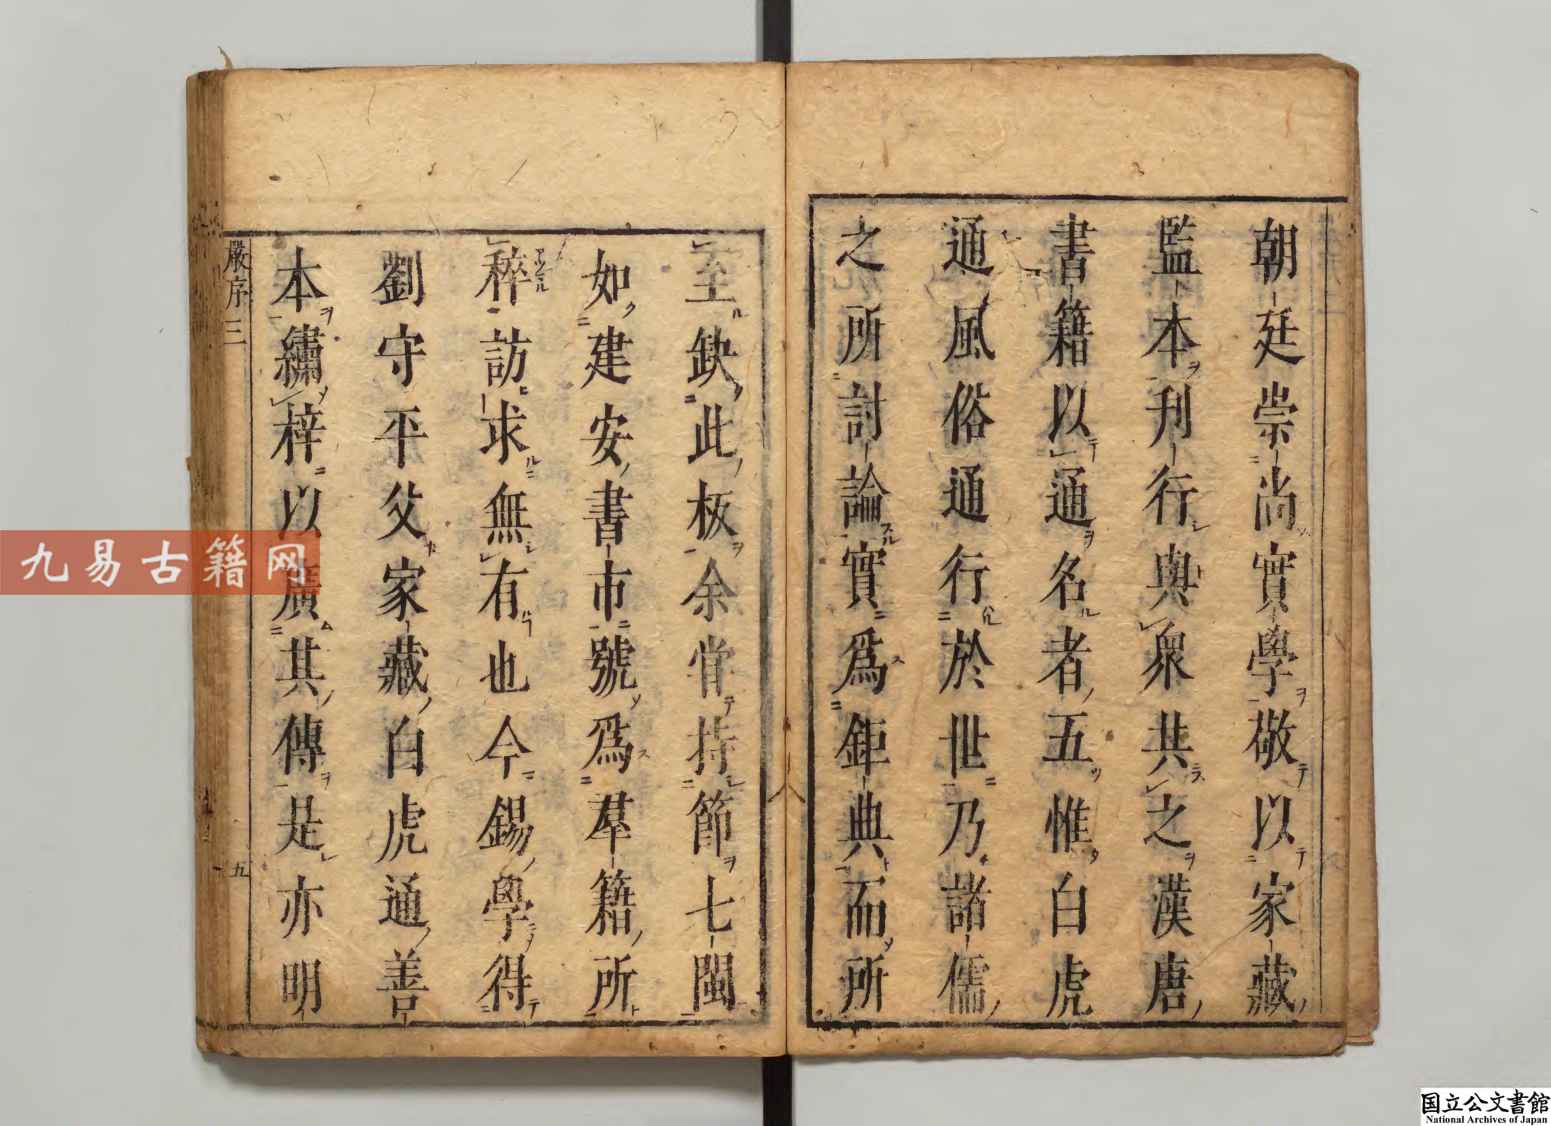 朝廷崇尚實學敬以家藏
監本刊行與衆共之漢唐
書籍以通名者五惟白虎
通風俗通行於世乃諸儒
之所討論實爲鉅典而所
至缺此板余甞持節七閩
如建安書市號爲羣籍所
稡訪求無有也今錫學得
劉守平父家藏白虎通善
本繡梓以廣其傳是亦明
嚴序三
五
九易古籍网
国立公文書館
National Archives of Japan